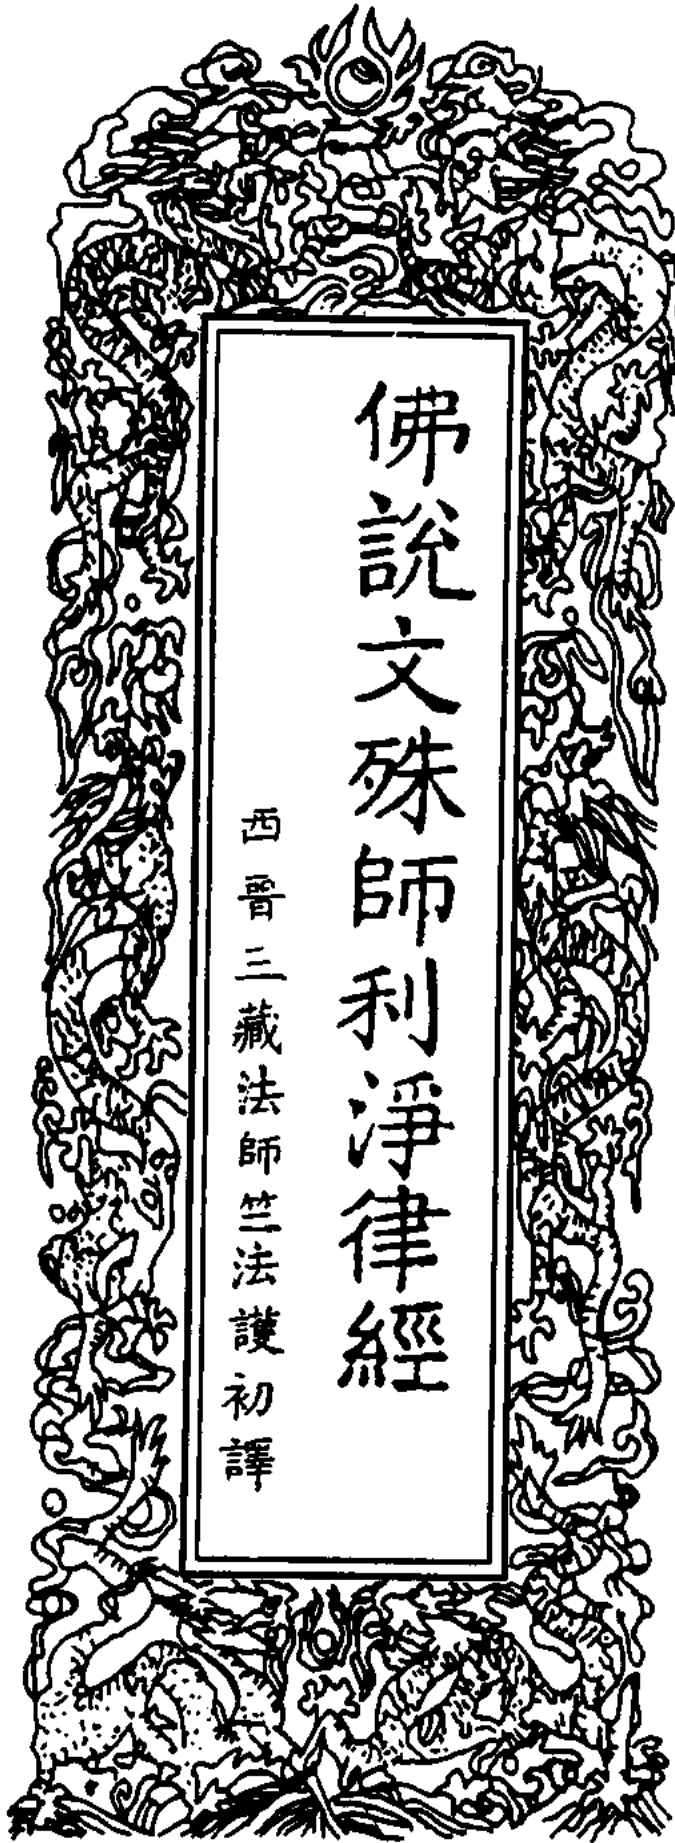 佛說文殊師利淨律經
西晉三藏法師竺法護初譯